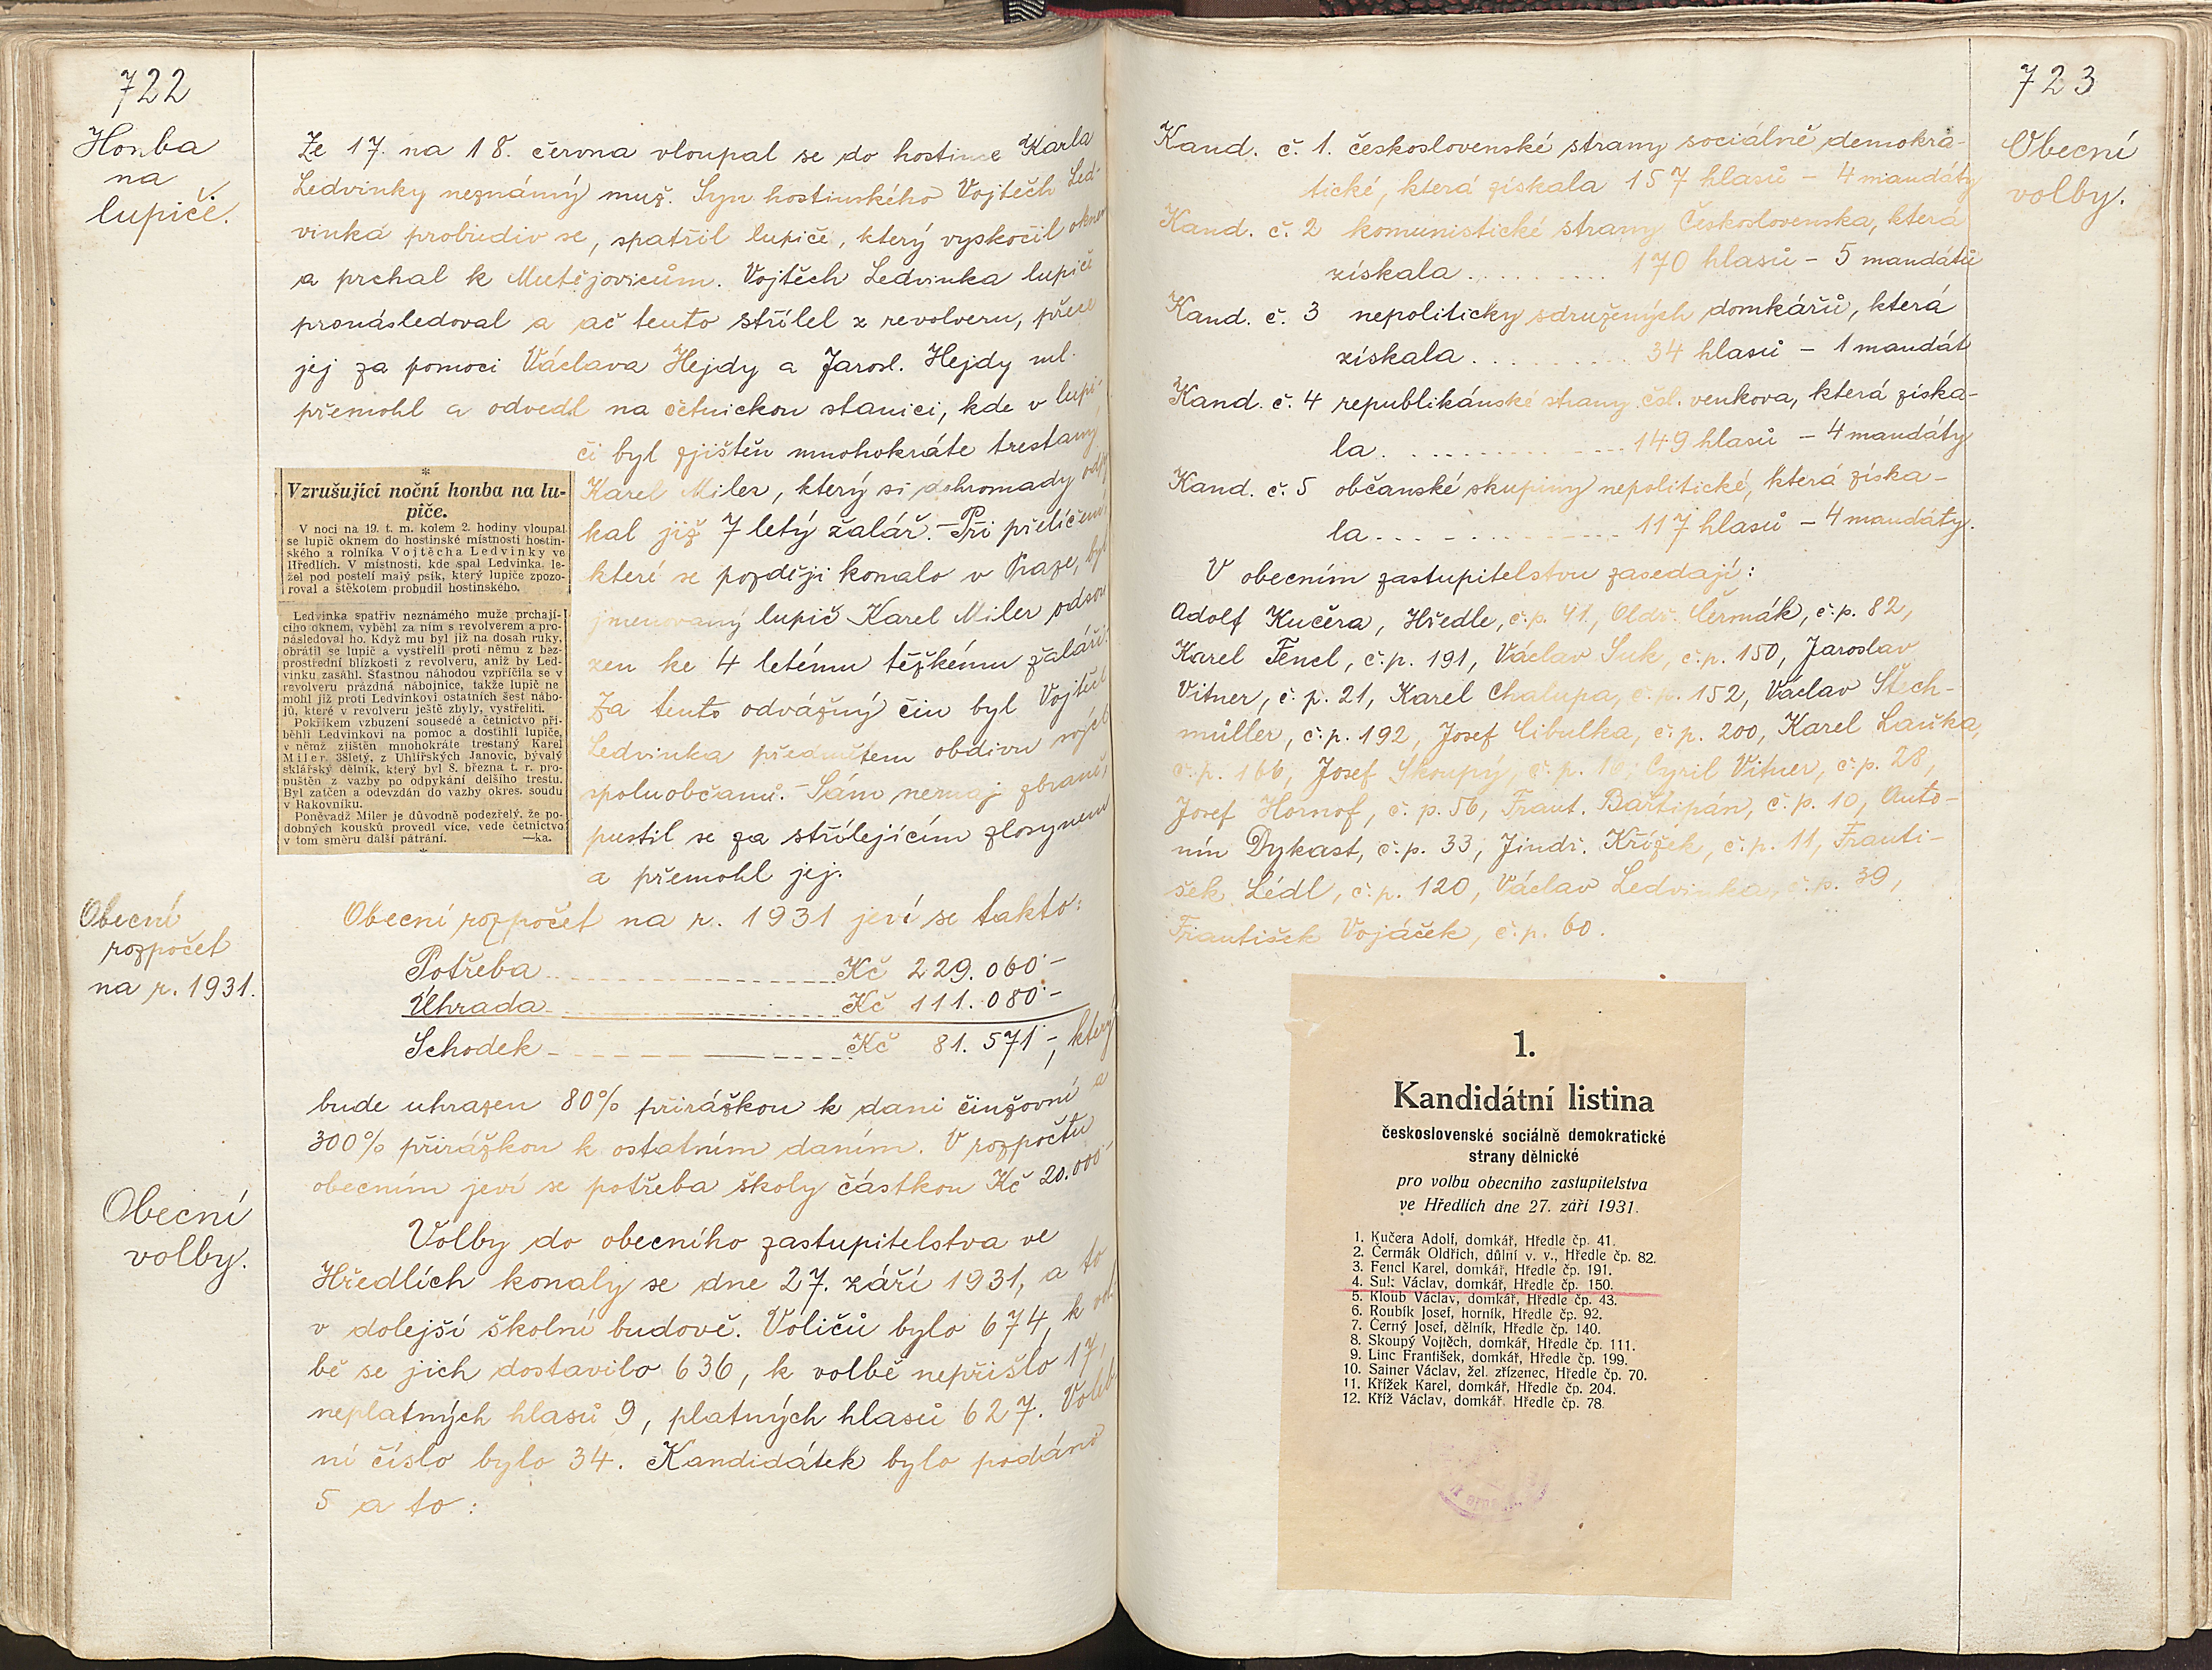 722
Honba
na
lupiče.
Ze 17. na 18. června vloupal se do hostince Karla
Ledvinky neznámý muž. Syn hostinského Vojtěch Led-
vinka probudiv se, spatřil lupiče, který vyskočil oknem
a prchal k Mutějovicům. Vojtěch Ledvinka lupiče
pronásledoval a ač tento střílel z revolveru, přece
jej za pomoci Václava Hejdy a Jarosl. Hejdy ml.
přemohl a odvedl na četnickou stanici, kde v lupi-
či byl zjištěn mnohokráte trestaný
Karel Miler, který si dohromady odpy
kal již 7 letý žalář. - Při přelíčení
které se později konalo v Praze, byl
jmenovaný lupič Karel Miler odsou
zen ke 4 letému těžkému žaláři.
Za tento odvážný čin byl Vojtěch
Ledvinka předmětem obdivu svých
spoluobčanů. - Sám nemaje zbraně,
pustil se za střílejícím zlosynem
a přemohl jej.
*
Vzrušující noční honba na lu-
piče.
V noci na 19. t. m. kolem 2. hodiny vloupal
se lupič oknem do hostinské místnosti hostin-
ského a rolníka Vojtěcha Ledvinky ve
Hředlích. V místnosti, kde spal Ledvinka, le-
žel pod postelí malý psík, který lupiče zpozo-
roval a štěkotem probudil hostinského.
Ledvinka spatřiv neznámého muže prchají-
cího oknem, vyběhl za ním s revolverem a pro-
následoval ho. Když mu byl již na dosah ruky,
obrátil se lupič a vystřelil proti němu z bez-
prostřední blízkosti z revolveru, aniž by Led-
vinku zasáhl. Šťastnou náhodou vzpříčila se v
revolveru prázdná nábojnice, takže lupič ne
mohl již proti Ledvinkovi ostatních šest nábo-
jů, které v revolveru ještě zbyly, vystřeliti.
Pokřikem vzbuzení sousedé a četnictvo při-
běhli Ledvinkovi na pomoc a dostihli lupiče,
v němž zjištěn mnohokráte trestaný Karel
Miler, 38letý, z Uhlířských Janovic, bývalý
sklářský dělník, který byl 8. března t. r. pro-
puštěn z vazby po odpykání delšího trestu.
Byl zatčen a odevzdán do vazby okres. soudu
v Rakovníku.
Poněvadž Miler je důvodně podezřelý, že po-
dobných kousků provedl více, vede četnictvo
v tom směru další pátrání. —ka.
*
Obecní
rozpočet
na r. 1931.
Obecní rozpočet na r. 1931 jeví se takto:
Potřeba Kč 229.060·-
Úhrada Kč 111.080·-
Schodek Kč 81.571·-, který
bude uhrazen 80% přirážkou k dani činžovní a
300% přirážkou k ostatním daním. V rozpočtu
obecním jeví se potřeba školy částkou Kč 20.000·-
Obecní
volby.
Volby do obecního zastupitelstva ve
Hředlích konaly se dne 27. září 1931, a to
v dolejší školní budově. Voličů bylo 674, k vol
bě se jich dostavilo 636, k volbě nepřišlo 17,
neplatných hlasů 9, platných hlasů 627. Voleb
ní číslo bylo 34. Kandidátek bylo podáno
5 a to:
723
Obecní
volby.
Kand. č. 1. československé strany sociálně demokra-
tické, která získala 157 hlasů - 4 mandáty
Kand. č. 2 komunistické strany Československa, která
získala 170 hlasů - 5 mandátů
Kand. č. 3 nepoliticky sdružených domkářů, která
získala 34 hlasů - 1 mandát
Kand. č. 4 republikánské strany čsl. venkova, která získa-
la 149 hlasů - 4 mandáty
Kand. č. 5 občanské skupiny nepolitické, která získa-
la 117 hlasů - 4 mandáty.
V obecním zastupitelstvu zasedají:
Adolf Kučera, Hředle, č.p. 41, Oldř. Čermák, č.p. 82,
Karel Fencl, č.p. 191, Václav Suk, č.p. 150, Jaroslav
Vitner, č.p. 21, Karel Chalupa, č.p. 152, Václav Stech-
müller, č.p. 192, Josef Cibulka, č.p. 200, Karel Laňka,
č.p. 166, Josef Skoupý, č.p. 16, Cyril Vitner, č.p. 28,
Josef Hornof, č.p. 56, Frant. Bartipán, č.p. 10, Anto-
nín Dykast, č.p. 33, Jindř. Křížek, č.p. 11, Franti-
šek Lédl, č.p. 120, Václav Ledvinka, č.p. 39,
František Vojáček, č.p. 60.
1.
Kandidátní listina
československé sociálně demokratické
strany dělnické
pro volbu obecního zastupitelstva
ve Hředlích dne 27. září 1931.
1. Kučera Adolf, domkář, Hředle čp. 41.
2. Čermák Oldřich, důlní v. v., Hředle čp. 82.
3. Fencl Karel, domkář, Hředle čp. 191.
4. Suk Václav, domkář, Hředle čp. 150.
5. Kloub Václav, domkář, Hředle čp. 43.
6. Roubík Josef, horník, Hředle čp. 92.
7. Černý Josef, dělník, Hředle čp. 140.
8. Skoupý Vojtěch, domkář, Hředle čp. 111.
9. Linc František, domkář, Hředle čp. 199.
10. Sainer Václav, žel. zřízenec, Hředle čp. 70.
11. Křížek Karel, domkář, Hředle čp. 204.
12. Kříž Václav, domkář, Hředle čp. 78.